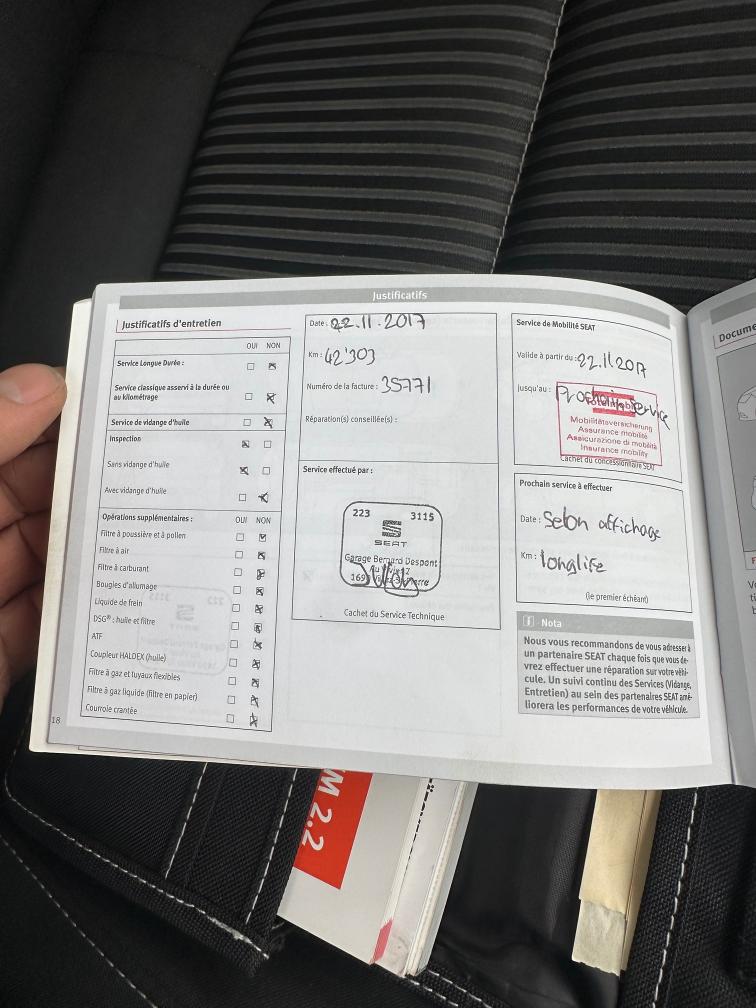 Justificatifs
Justificatifs d'entretien
OUI NON
Service Longue Durée :
Service classique asservi à la durée ou
au kilométrage
Service de vidange d'huile
Inspection
Sans vidange d'huile
Avec vidange d'huile
Opérations supplémentaires : OUI NON
Filtre à poussière et à pollen
Filtre à air
Filtre à carburant
Bougies d'allumage
Liquide de frein
DSG® : huile et filtre
ATF
Coupleur HALDEX (huile)
Filtre à gaz et tuyaux flexibles
Filtre à gaz liquide (filtre en papier)
Courroie crantée
18
Date : 22.11.2017
Km : 42'303
Numéro de la facture : 35771
Réparation(s) conseillée(s) :
Service effectué par :
223 3115
SEAT
Garage Bernard Despont
Cachet du Service Technique
Service de Mobilité SEAT
Valide à partir du : 22.11.2017
Jusqu'au : Prochain Service
Totalmobil
Mobilitätsversicherung
Assurance mobilité
Assicurazione di mobilità
Insurance mobility
Cachet du concessionnaire SEAT
Prochain service à effectuer
Date : Selon affichage
Km : longlife
(le premier échéant)
i Nota
Nous vous recommandons de vous adresser à
un partenaire SEAT chaque fois que vous de-
vrez effectuer une réparation sur votre véhi-
cule. Un suivi continu des Services (Vidange,
Entretien) au sein des partenaires SEAT amé-
liorera les performances de votre véhicule.
Docume
M 2:2